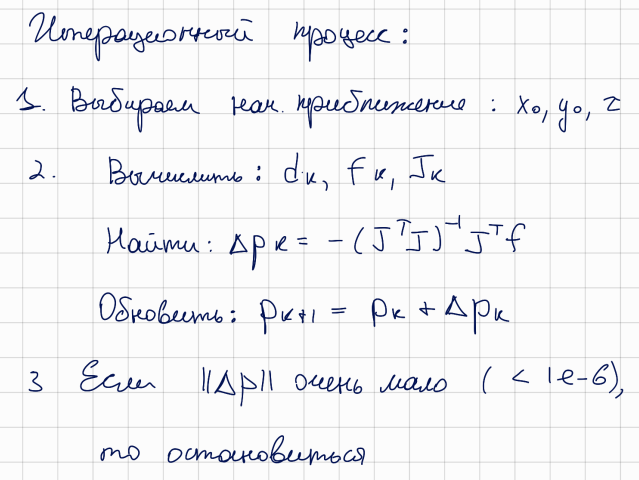 Итерационный процесс:
1. Выбираем нач. приближение: x₀, y₀, z
2. Вычислить: dₖ, fₖ, Jₖ
Найти: Δpₖ = -(JᵀJ)⁻¹Jᵀf
Обновить: pₖ₊₁ = pₖ + Δpₖ
3 Если ||Δp|| очень мало (< 1e-6),
то остановиться